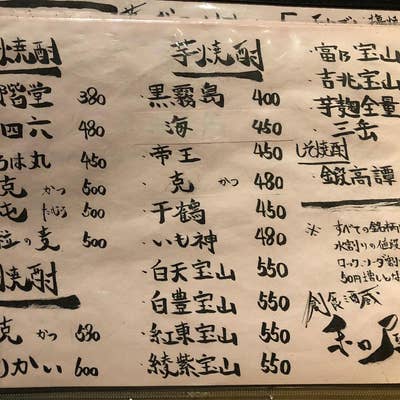 焼酎
階堂 380
四六 480
ろは丸 450
克 かつ 500
500
粒の麦 500
焼酎
克 かつ 530
かい 600
芋焼酎
・黒霧島 400
・海 450
・帝王 450
・克 かつ 480
・千鶴 450
・いも神 480
・白天宝山 550
・白豊宝山 550
・紅東宝山 550
・綾紫宝山 550
・富乃宝山
・吉兆宝山
・芋麹全量
・三岳
しそ焼酎
・鍛高譚
※ すべての銘柄
水割りの値段
ロック、ソーダ割
50円増しとな
創食酒蔵
和